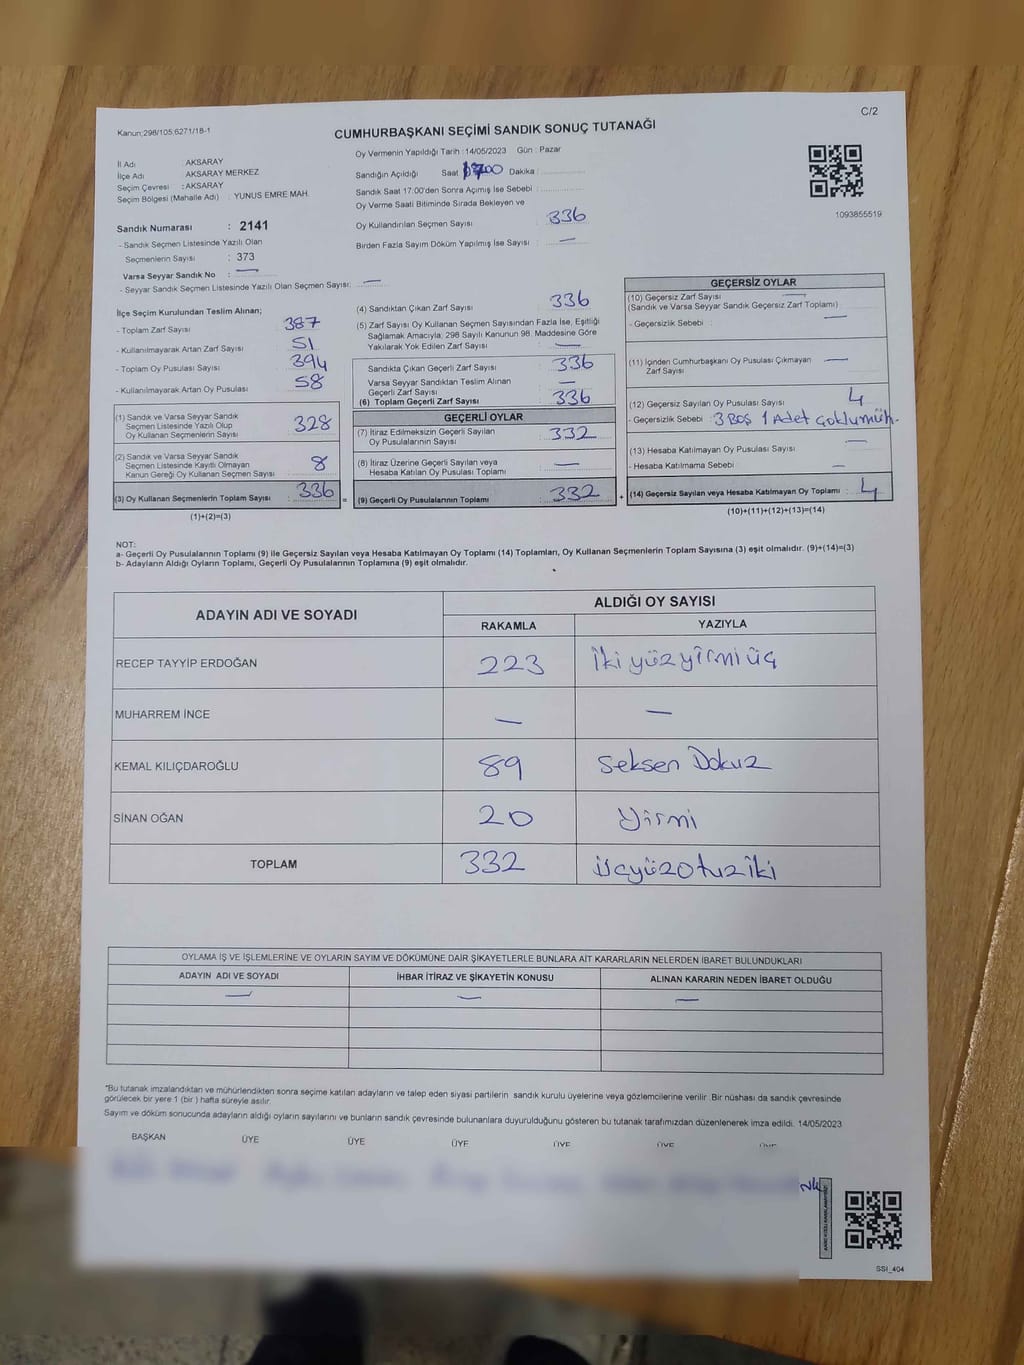 C/2
Kanun:298/105;6271/18-1
CUMHURBAŞKANI SEÇİMİ SANDIK SONUÇ TUTANAĞI
İl Adı AKSARAY
İlçe Adı AKSARAY MERKEZ
Seçim Çevresi : AKSARAY
Seçim Bölgesi (Mahalle Adı) : YUNUS EMRE MAH.
Sandık Numarası : 2141
- Sandık Seçmen Listesinde Yazılı Olan
Seçmenlerin Sayısı : 373
Varsa Seyyar Sandık No : —
- Seyyar Sandık Seçmen Listesinde Yazılı Olan Seçmen Sayısı: —
Oy Vermenin Yapıldığı Tarih : 14/05/2023 Gün : Pazar
Sandığın Açıldığı Saat 1700 Dakika :
Sandık Saat 17:00'den Sonra Açımış İse Sebebi :
Oy Verme Saati Bitiminde Sırada Bekleyen ve
Oy Kullandırılan Seçmen Sayısı : 336
Birden Fazla Sayım Döküm Yapılmış İse Sayısı : —
1093855519
İlçe Seçim Kurulundan Teslim Alınan;
- Toplam Zarf Sayısı : 387
- Kullanılmayarak Artan Zarf Sayısı : 51
- Toplam Oy Pusulası Sayısı : 394
- Kullanılmayarak Artan Oy Pusulası : 58
(1) Sandık ve Varsa Seyyar Sandık
Seçmen Listesinde Yazılı Olup
Oy Kullanan Seçmenlerin Sayısı : 328
(2) Sandık ve Varsa Seyyar Sandık
Seçmen Listesinde Kayıtlı Olmayan
Kanun Gereği Oy Kullanan Seçmen Sayısı : 8
(3) Oy Kullanan Seçmenlerin Toplam Sayısı : 336 =
(1)+(2)=(3)
(4) Sandıktan Çıkan Zarf Sayısı : 336
(5) Zarf Sayısı Oy Kullanan Seçmen Sayısından Fazla İse, Eşitliği
Sağlamak Amacıyla; 298 Sayılı Kanunun 98. Maddesine Göre
Yakılarak Yok Edilen Zarf Sayısı : —
Sandıkta Çıkan Geçerli Zarf Sayısı : 336
Varsa Seyyar Sandıktan Teslim Alınan
Geçerli Zarf Sayısı : —
(6) Toplam Geçerli Zarf Sayısı : 336
GEÇERLİ OYLAR
(7) İtiraz Edilmeksizin Geçerli Sayılan
Oy Pusulalarının Sayısı : 332
(8) İtiraz Üzerine Geçerli Sayılan veya
Hesaba Katılan Oy Pusulası Toplamı : —
(9) Geçerli Oy Pusulalarının Toplamı : 332 +
GEÇERSİZ OYLAR
(10) Geçersiz Zarf Sayısı —
(Sandık ve Varsa Seyyar Sandık Geçersiz Zarf Toplamı)
- Geçersizlik Sebebi : —
(11) İçinden Cumhurbaşkanı Oy Pusulası Çıkmayan —
Zarf Sayısı
(12) Geçersiz Sayılan Oy Pusulası Sayısı : 4
- Geçersizlik Sebebi : 3 Boş 1 Adet Çoklumüh.
(13) Hesaba Katılmayan Oy Pusulası Sayısı : —
- Hesaba Katılmama Sebebi : —
(14) Geçersiz Sayılan veya Hesaba Katılmayan Oy Toplamı : 4
(10)+(11)+(12)+(13)=(14)
NOT:
a- Geçerli Oy Pusulalarının Toplamı (9) ile Geçersiz Sayılan veya Hesaba Katılmayan Oy Toplamı (14) Toplamları, Oy Kullanan Seçmenlerin Toplam Sayısına (3) eşit olmalıdır. (9)+(14)=(3)
b- Adayların Aldığı Oyların Toplamı, Geçerli Oy Pusulalarının Toplamına (9) eşit olmalıdır.
ADAYIN ADI VE SOYADI ALDIĞI OY SAYISI
RAKAMLA YAZIYLA
RECEP TAYYİP ERDOĞAN 223 İkiyüzyirmiüç
MUHARREM İNCE — —
KEMAL KILIÇDAROĞLU 89 Seksen Dokuz
SİNAN OĞAN 20 Yirmi
TOPLAM 332 Üçyüzotuziki
OYLAMA İŞ VE İŞLEMLERİNE VE OYLARIN SAYIM VE DÖKÜMÜNE DAİR ŞİKAYETLERLE BUNLARA AİT KARARLARIN NELERDEN İBARET BULUNDUKLARI
ADAYIN ADI VE SOYADI İHBAR İTİRAZ VE ŞİKAYETİN KONUSU ALINAN KARARIN NEDEN İBARET OLDUĞU
— — —
*Bu tutanak imzalandıktan ve mühürlendikten sonra seçime katılan adayların ve talep eden siyasi partilerin sandık kurulu üyelerine veya gözlemcilerine verilir. Bir nüshası da sandık çevresinde
görülecek bir yere 1 (bir ) hafta süreyle asılır.
Sayım ve döküm sonucunda adayların aldığı oyların sayılarını ve bunların sandık çevresinde bulunanlara duyurulduğunu gösteren bu tutanak tarafımızdan düzenlenerek imza edildi. 14/05/2023
BAŞKAN ÜYE ÜYE ÜYE ÜYE ÜYE ÜYE
SSI_404